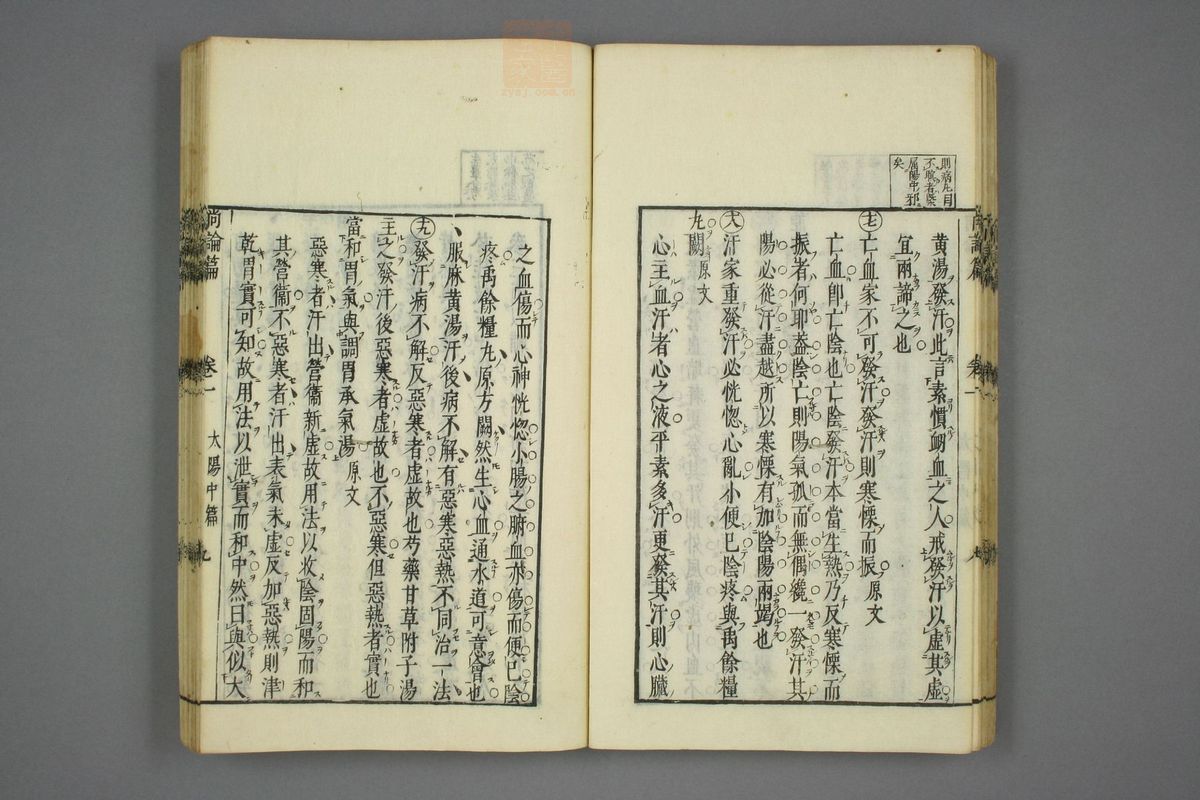 則病九自
不晙者槩
屬陽中邪
矣
黃湯發汗此言素慣衂血之人戒發汗以虛其虛
宜兩諦之也
七亡血家不可發汗發汗則寒慄而振原文
亡血卽亡陰也亡陰發汗本當生熱乃反寒慄而
振者何耶蓋陰亡則陽氣孤而無偶纔一發汗其
陽必從汗盡越所以寒慄有加陰陽兩竭也
汗家重發汗必恍惚心亂小便已陰疼與禹餘糧
九闕原文
心主血汗者心之液平素多汗更發其汗則心臟
之血傷而心神恍惚小腸之腑血亦傷而便已陰
疼禹餘糧丸原方闕然生心血通水道可意會也
服麻黃湯汗後病不解有惡寒惡熱不同治一法
發汗病不解反惡寒者虛故也芍藥甘草附子湯
主之發汗後惡寒者虛故也不惡寒但惡熱者實也
當和胃氣與調胃承氣湯原文
惡寒者汗出營衞新虛故用法以收陰固陽而和
其營衞不惡寒者汗出表氣未虛反加惡熱則津
乾胃實可知故用法以泄實而和中然曰與似大
尚論篇
卷一
太陽中篇
九